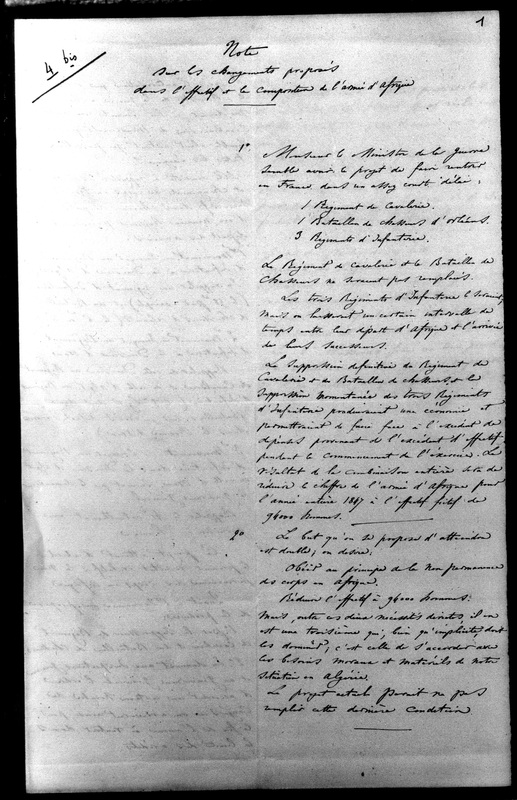 1
4 bis
Note
sur les changements proposés
dans l'effectif et la composition de l'armée d'Afrique
1°
Monsieur le Ministre de la Guerre
semble avoir le projet de faire rentrer
en France dans un assez court délai :
1 Régiment de Cavalerie.
1 Bataillon de chasseurs d'orléans.
3 Régiments d'Infanterie.
Le Régiment de Cavalerie et le Bataillon de
Chasseurs ne seraient pas remplacés.
Les trois Régiments d'Infanterie le seraient,
mais en laissant un certain intervalle de
temps entre leur départ d'Afrique et l'arrivée
de leurs successeurs.
La suppression définitive du Régiment de
Cavalerie et du Bataillon de chasseurs, et la
suppression momentanée des trois Régiments
d'Infanterie produiraient une économie et
permettraient de faire face à l'excédent de
dépenses provenant de l'excédent d'effectif
pendant le Commencement de l'exercice. Le
résultat de la combinaison entière sera de
réduire le chiffre de l'armée d'Afrique pour
l'année entière 1847 à l'effectif fictif de
94000 hommes.
2°
Le but qu'on se propose d'atteindre
est double ; on désire :
Obéir au principe de la non permanence
des corps en Afrique.
Réduire l'effectif à 94000 hommes.
Mais, outre ces deux nécessités directes il en
est une troisième qui, bien qu'implicite, doit
les dominer ; c'est celle de s'accorder avec
les besoins moraux et matériels de notre
situation en Algérie.
Le projet actuel paraît ne pas
remplir cette dernière condition